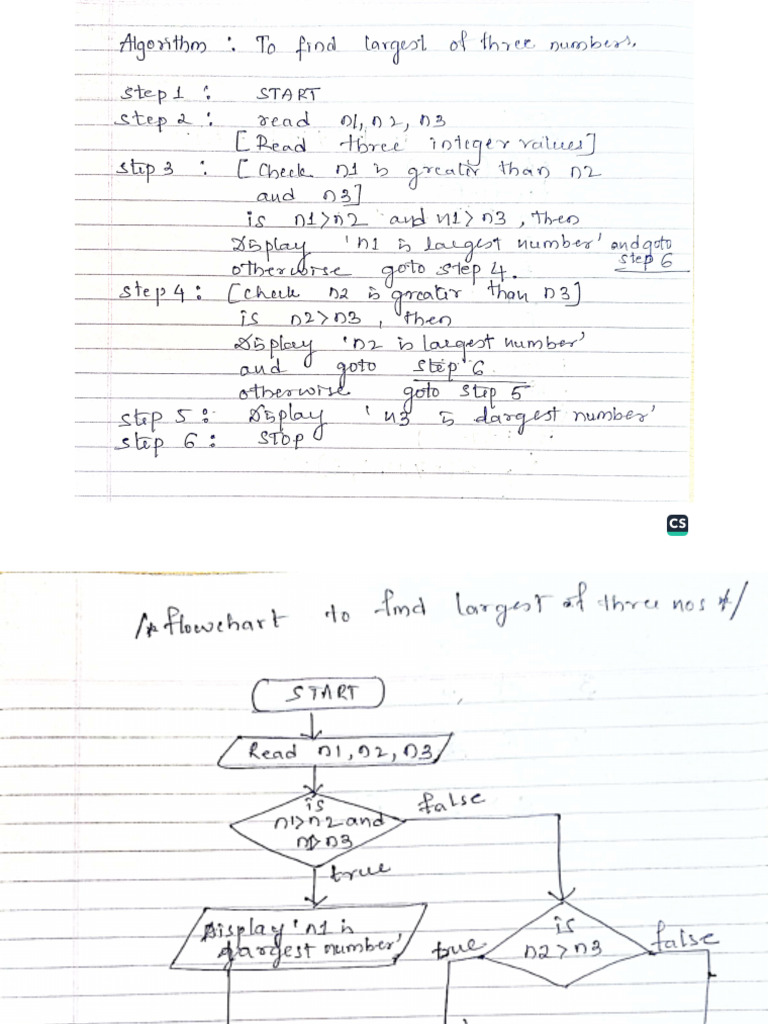 Algorithm : To find largest of three numbers.
Step 1 : START
Step 2 : read n1, n2, n3
[Read three integer values]
Step 3 : [Check n1 is greater than n2
and n3]
is n1>n2 and n1>n3, then
Display 'n1 is largest number' and goto
step 6
otherwise goto step 4.
Step 4 : [check n2 is greater than n3]
is n2>n3, then
Display 'n2 is largest number'
and goto step 6
otherwise goto step 5
step 5 : Display 'n3 is largest number'
step 6 : STOP
CS
/* flowchart to find largest of three nos */
START
Read n1, n2, n3
is
n1>n2 and
n1>n3
false
true
Display 'n1 is
largest number'
is
n2>n3
true
false